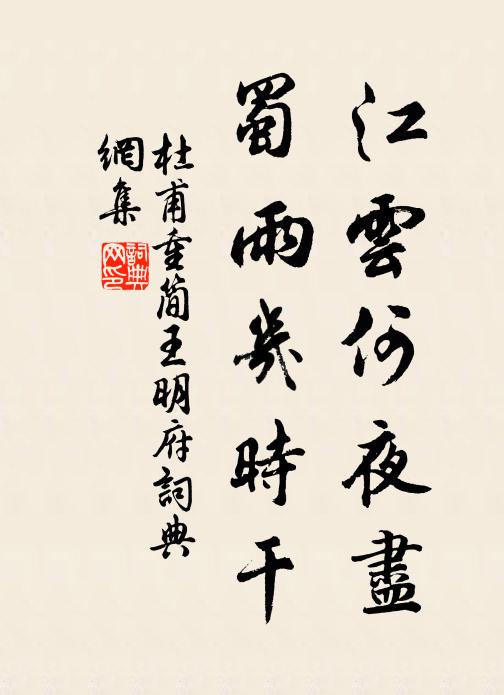 江雲何夜盡
蜀雨幾時干
杜甫重簡王明府詞典
網集
詞典
网印